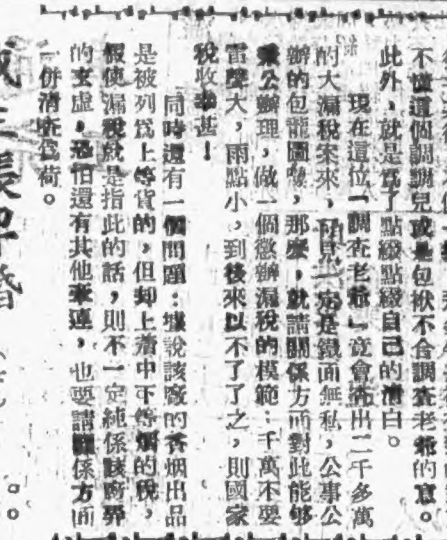 不懂這個調調兒或是包袱不合調查老爺的意。
此外，就是爲了點綴點綴自己的清白。
現在這位「調查老爺」竟會查出二千多萬
的大漏稅案來，可見一定是鐵面無私，公事公
辦的包龍圖嘍，那麼，就請關係方面對此能够
秉公辦理，做一個懲辦漏稅的模範：千萬不要
雷聲大，雨點小，到後來以不了了之，則國家
稅收幸甚！
同時還有一個問題：據說該廠的香烟出品
是被列爲上等貨的，但却上着中下等烟的稅，
假使漏稅就是指此的話，則不一定純係該廠弄
的玄虛，恐怕還有其他牽連，也要請關係方面
一併清查爲荷。